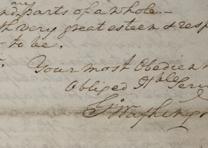 and parts of a whole
th very great esteem & resp
to be.
Your most Obedient
Obliged Hble Serv
G: Washingt